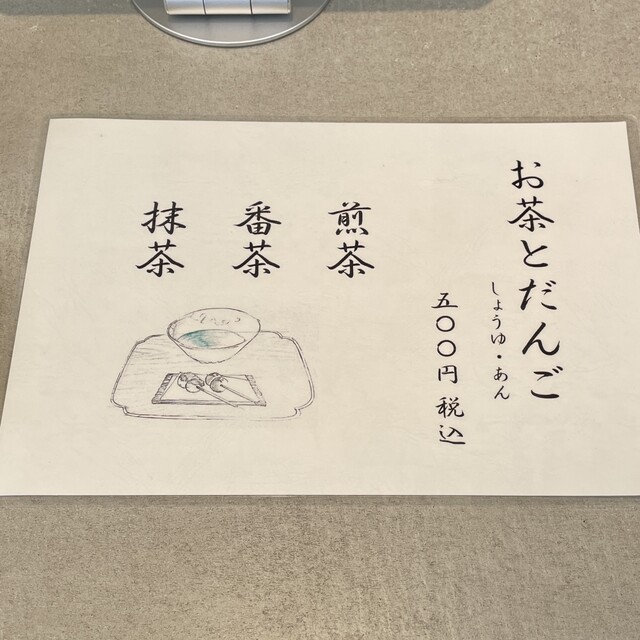 お茶とだんご
しょうゆ・あん
五〇〇円 税込
煎茶
番茶
抹茶